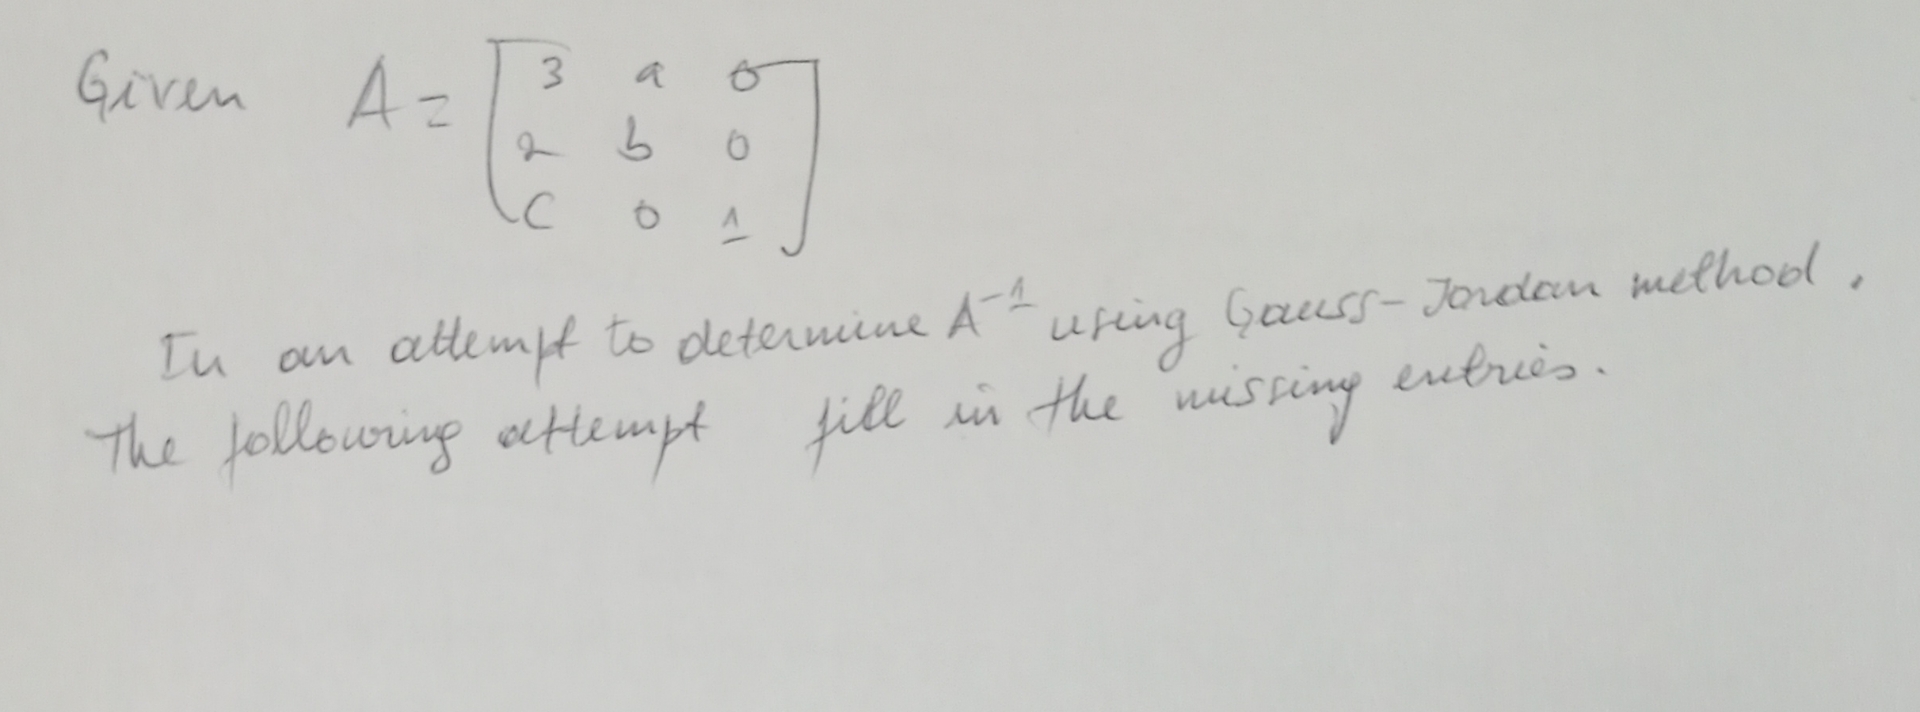 Given A = [3 a 0
2 b 0
C 0 1]
In an attempt to determine A⁻¹ using Gauss-Jordan method.
The following attempt fill in the missing entries.